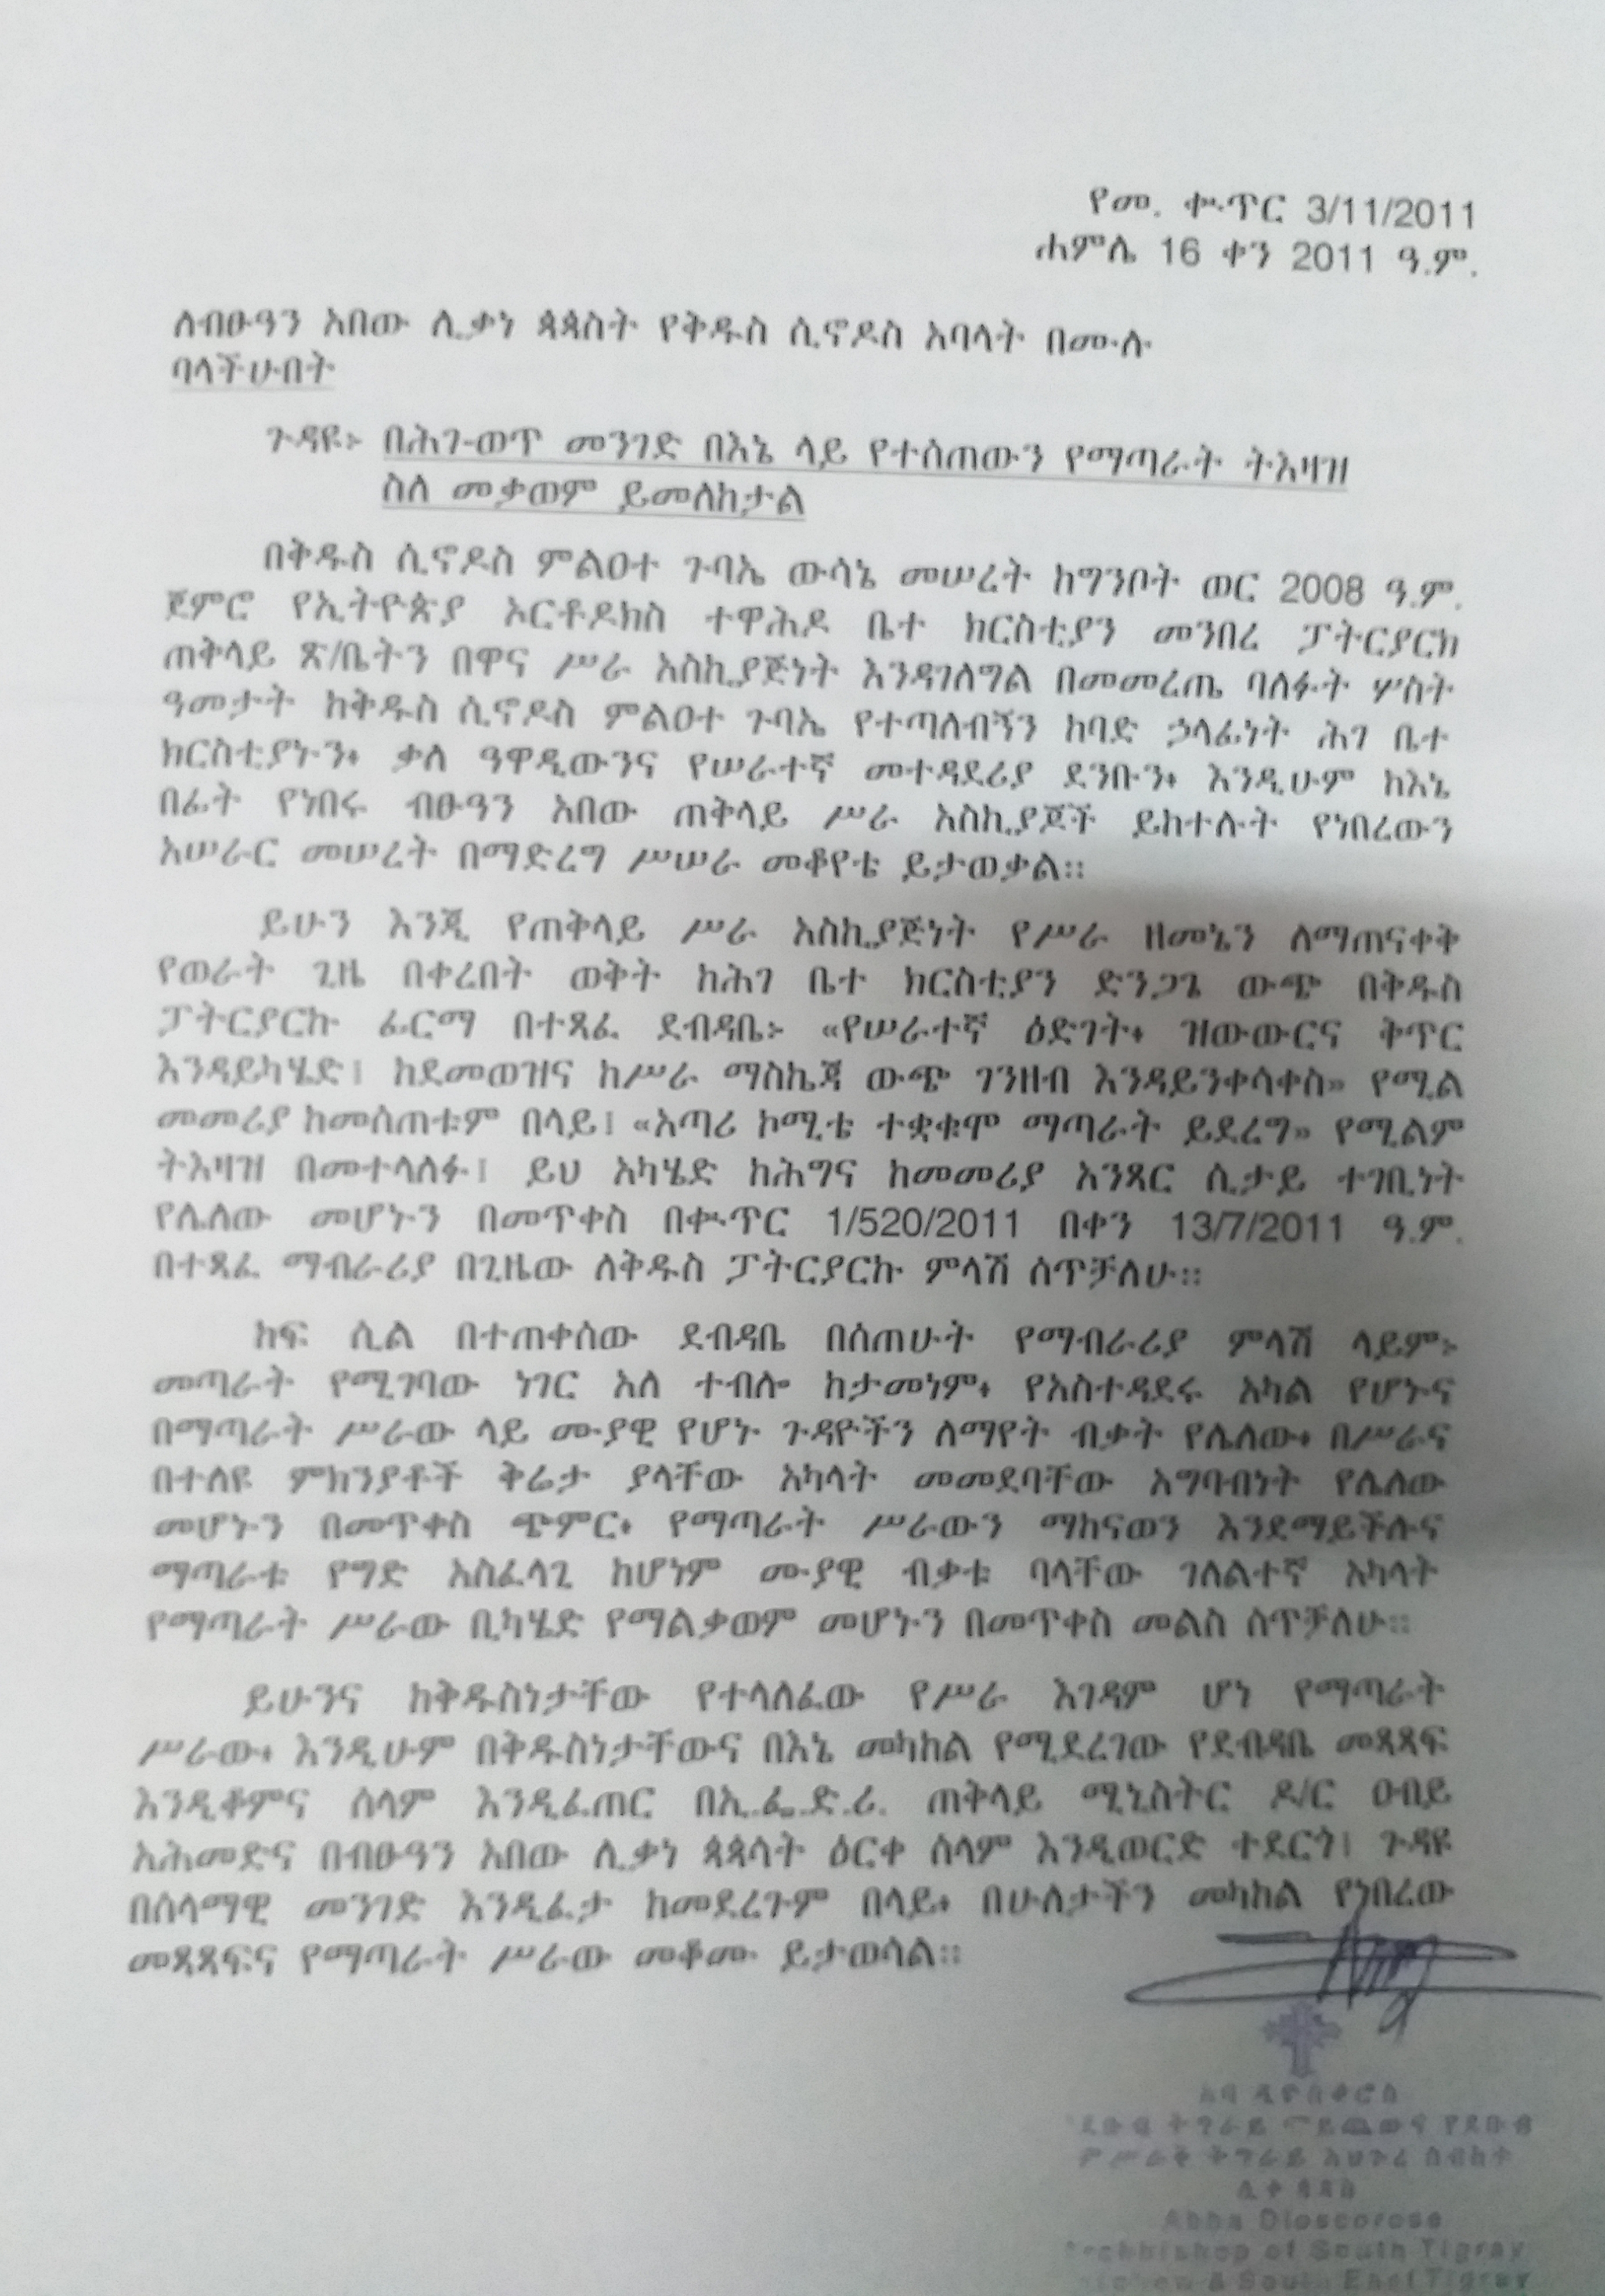 የመ. ቍጥር 3/11/2011
ሐምሌ 16 ቀን 2011 ዓ.ም.
ለብፁዓን አበው ሊቃነ ጳጳስት የቅዱስ ሲኖዶስ አባላት በሙሉ
ባላችሁበት
ጉዳዩ፦ በሕገ-ወጥ መንገድ በእኔ ላይ የተሰጠውን የማጣራት ትእዛዝ
ስለ መቃወም ይመለከታል
በቅዱስ ሲኖዶስ ምልዐተ ጉባኤ ውሳኔ መሠረት ከግንቦት ወር 2008 ዓ.ም.
ጀምሮ የኢትዮጵያ ኦርቶዶክስ ተዋሕዶ ቤተ ክርስቲያን መንበረ ፓትርያርክ
ጠቅላይ ጽ/ቤትን በዋና ሥራ አስኪያጅነት እንዳገለግል በመመረጤ ባለፉት ሦስት
ዓመታት ከቅዱስ ሲኖዶስ ምልዐተ ጉባኤ የተጣለብኝን ከባድ ኃላፊነት ሕገ ቤተ
ክርስቲያኑን፥ ቃለ ዓዋዲውንና የሠራተኛ መተዳደሪያ ደንቡን፥ እንዲሁም ከእኔ
በፊት የነበሩ ብፁዓን አበው ጠቅላይ ሥራ አስኪያጆች ይከተሉት የነበረውን
አሠራር መሠረት በማድረግ ሥሠራ መቆየቴ ይታወቃል።
ይሁን እንጂ የጠቅላይ ሥራ አስኪያጅነት የሥራ ዘመኔን ለማጠናቀቅ
የወራት ጊዜ በቀረበት ወቅት ከሕገ ቤተ ክርስቲያን ድንጋጌ ውጭ በቅዱስ
ፓትርያርኩ ፊርማ በተጻፈ ደብዳቤ፦ «የሠራተኛ ዕድገት፥ ዝውውርና ቅጥር
እንዳይካሄድ፤ ከደመወዝና ከሥራ ማስኬጃ ውጭ ገንዘብ እንዳይንቀሳቀስ» የሚል
መመሪያ ከመስጠቱም በላይ፤ «አጣሪ ኮሚቴ ተቋቁሞ ማጣራት ይደረግ» የሚልም
ትእዛዝ በመተላለፉ፤ ይህ አካሄድ ከሕግና ከመመሪያ አንጻር ሲታይ ተገቢነት
የሌለው መሆኑን በመጥቀስ በቍጥር 1/520/2011 በቀን 13/7/2011 ዓ.ም.
በተጻፈ ማብራሪያ በጊዜው ለቅዱስ ፓትርያርኩ ምላሽ ሰጥቻለሁ።
ከፍ ሲል በተጠቀሰው ደብዳቤ በሰጠሁት የማብራሪያ ምላሽ ላይም፦
መጣራት የሚገባው ነገር አለ ተብሎ ከታመነም፥ የአስተዳደሩ አካል የሆኑና
በማጣራት ሥራው ላይ ሙያዊ የሆኑ ጉዳዮችን ለማየት ብቃት የሌለው፥ በሥራና
በተለዩ ምክንያቶች ቅሬታ ያላቸው አካላት መመደባቸው አግባብነት የሌለው
መሆኑን በመጥቀስ ጭምር፥ የማጣራት ሥራውን ማከናወን እንደማይችሉና
ማጣራቱ የግድ አስፈላጊ ከሆነም ሙያዊ ብቃቱ ባላቸው ገለልተኛ አካላት
የማጣራት ሥራው ቢካሄድ የማልቃወም መሆኑን በመጥቀስ መልስ ሰጥቻለሁ።
ይሁንና ከቅዱስነታቸው የተላለፈው የሥራ እገዳም ሆነ የማጣራት
ሥራው፥ እንዲሁም በቅዱስነታቸውና በእኔ መካከል የሚደረገው የደብዳቤ መጻጻፍ
እንዲቆምና ሰላም እንዲፈጠር በኢ.ፌ.ድ.ሪ. ጠቅላይ ሚኒስትር ዶ/ር ዐብይ
አሕመድና በብፁዓን አበው ሊቃነ ጳጳሳት ዕርቀ ሰላም እንዲወርድ ተደርጎ፤ ጉዳዩ
በሰላማዊ መንገድ እንዲፈታ ከመደረጉም በላይ፥ በሁለታችን መካከል የነበረው
መጻጻፍና የማጣራት ሥራው መቆሙ ይታወሳል።
አባ ዲዮስቆሮስ
Abba Dioscorose
Archbishop of South Tigray
& South East Tigray